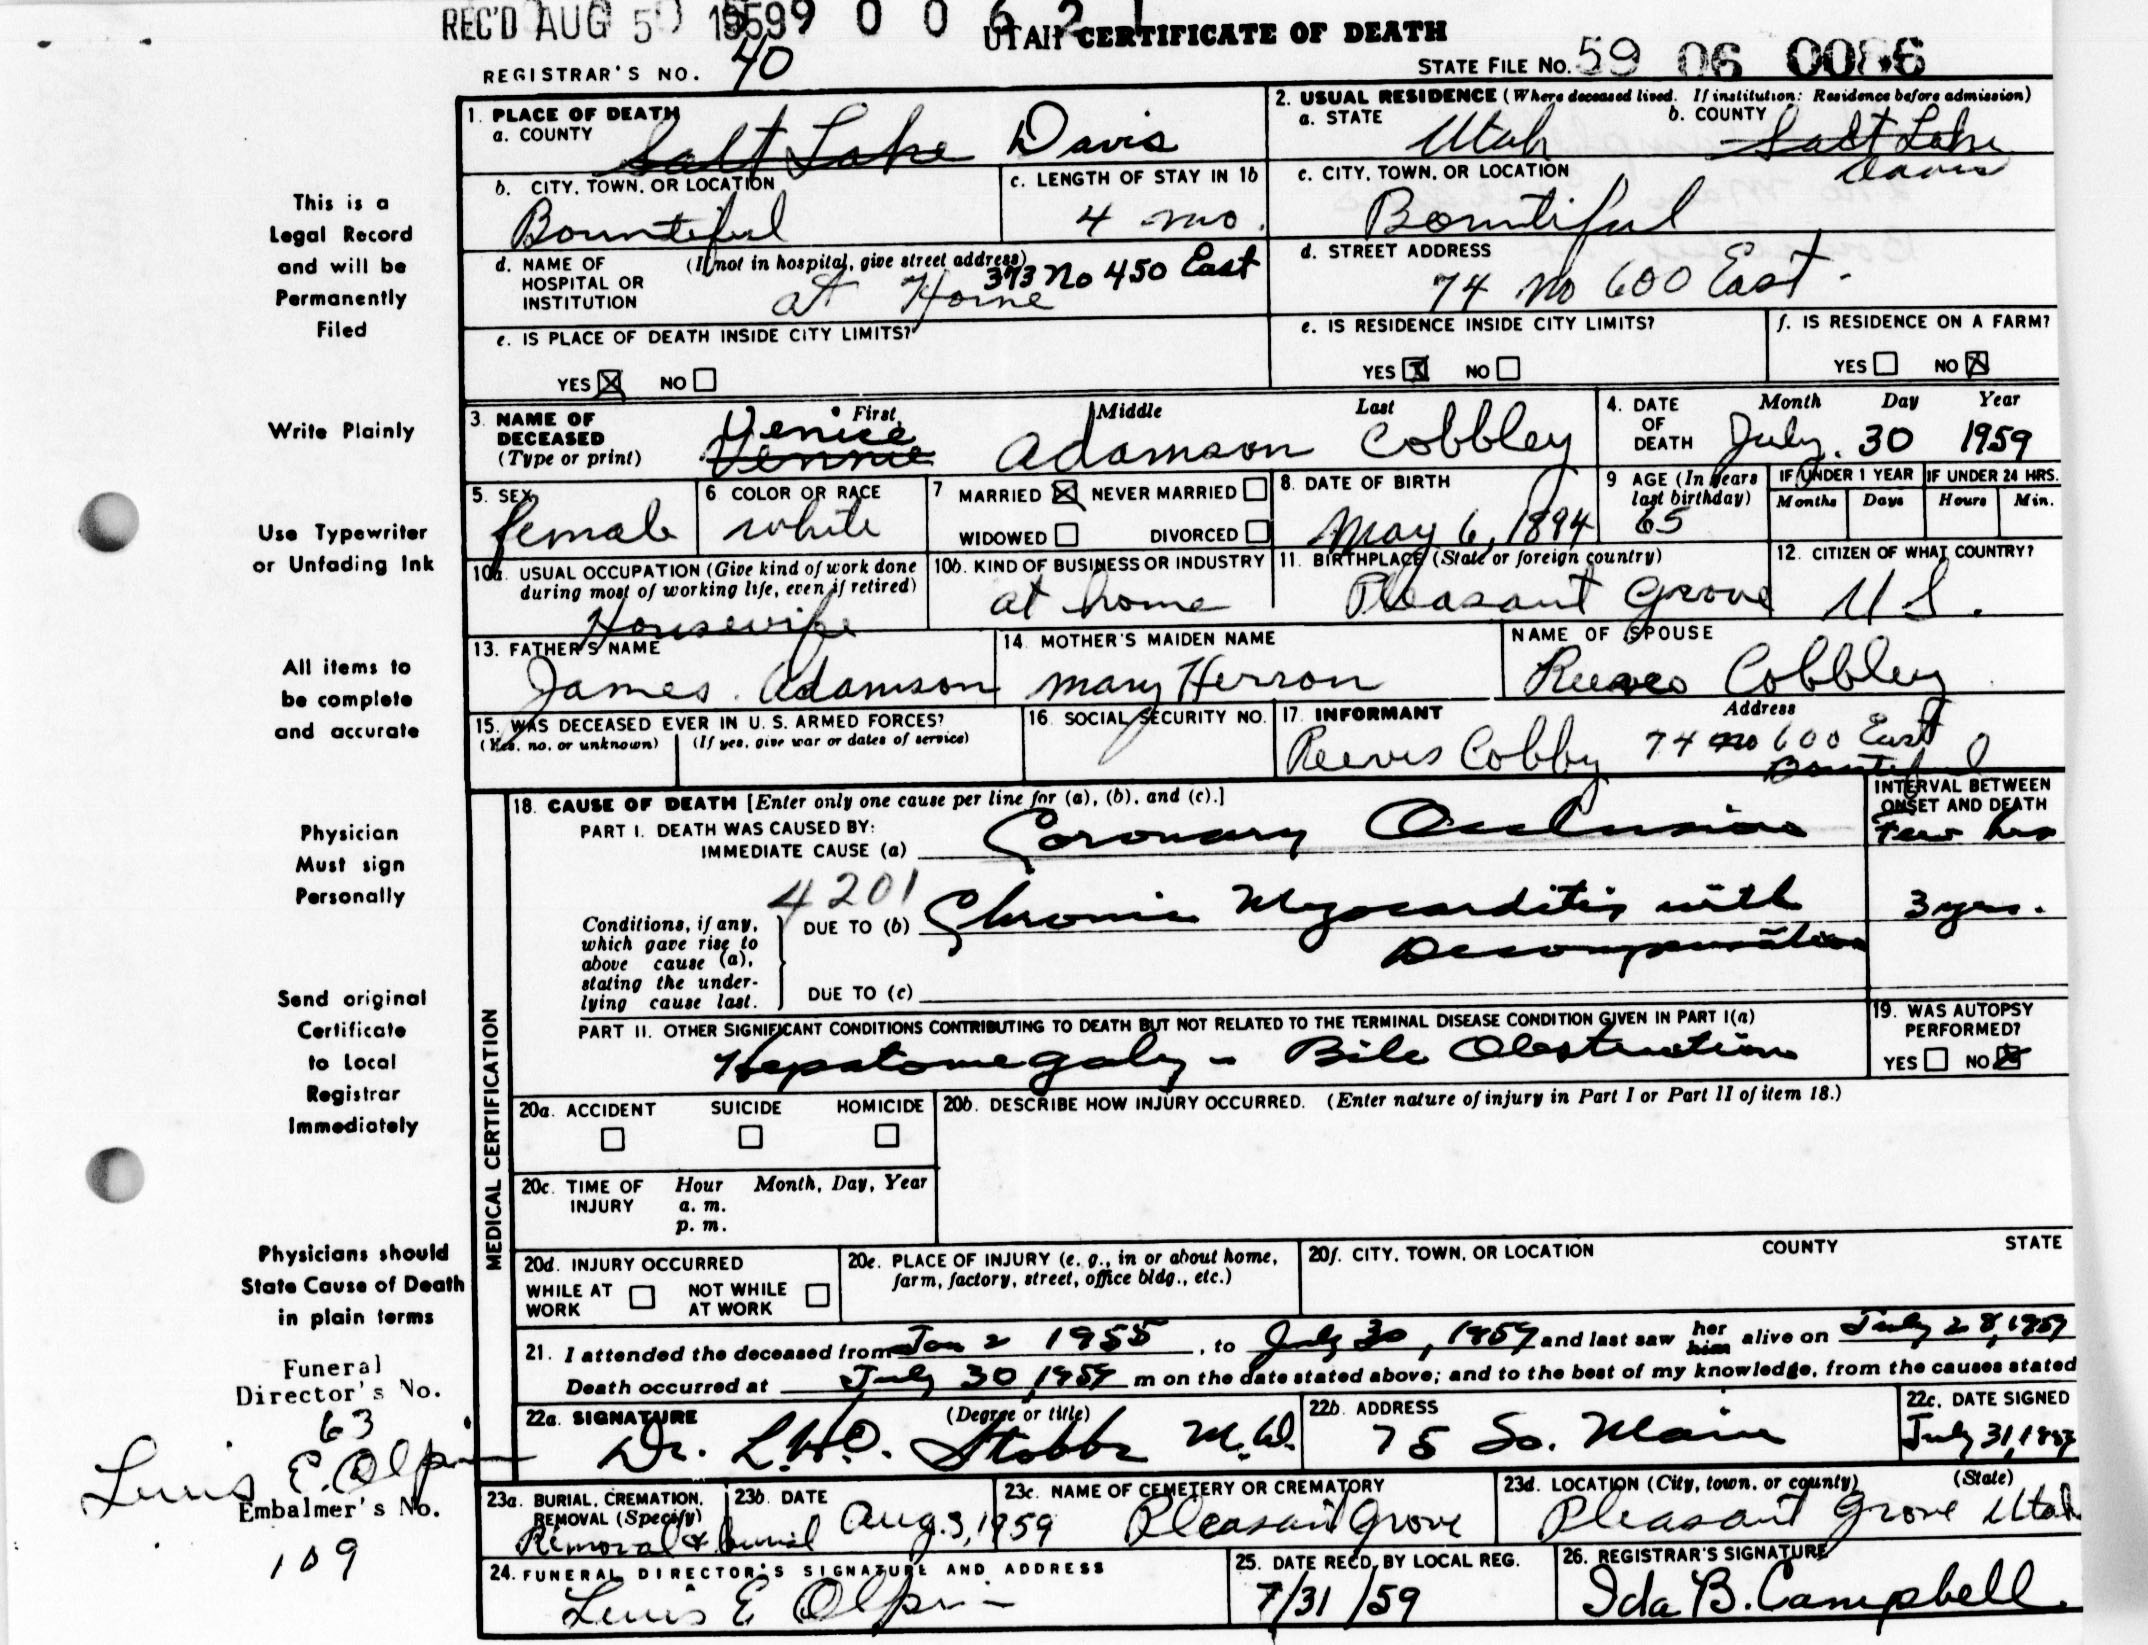 REC'D AUG 5 1959 9 0 0 6 2 1
UTAH CERTIFICATE OF DEATH
REGISTRAR'S NO. 40
STATE FILE NO. 59 06 0086
1. PLACE OF DEATH
a. COUNTY
Salt Lake Davis
2. USUAL RESIDENCE (Where deceased lived. If institution: Residence before admission)
a. STATE Utah
b. COUNTY Salt Lake
Davis
b. CITY, TOWN, OR LOCATION
Bountiful
c. LENGTH OF STAY IN 1b
4 mo.
c. CITY, TOWN, OR LOCATION
Bountiful
d. NAME OF HOSPITAL OR INSTITUTION
(If not in hospital, give street address)
373 No 450 East
at Home
d. STREET ADDRESS
74 No 600 East
e. IS PLACE OF DEATH INSIDE CITY LIMITS?
YES NO
e. IS RESIDENCE INSIDE CITY LIMITS?
YES NO
f. IS RESIDENCE ON A FARM?
YES NO
3. NAME OF DECEASED
(Type or print)
First Middle Last
Venice
Vennie Adamson Cobbley
4. DATE OF DEATH
Month Day Year
July 30 1959
5. SEX
female
6. COLOR OR RACE
white
7 MARRIED NEVER MARRIED
WIDOWED DIVORCED
8. DATE OF BIRTH
May 6, 1894
9 AGE (In years last birthday)
65
IF UNDER 1 YEAR
Months Days
IF UNDER 24 HRS.
Hours Min.
10a. USUAL OCCUPATION (Give kind of work done
during most of working life, even if retired)
Housewife
10b. KIND OF BUSINESS OR INDUSTRY
at home
11. BIRTHPLACE (State or foreign country)
Pleasant Grove
12. CITIZEN OF WHAT COUNTRY?
U S.
13. FATHER'S NAME
James Adamson
14. MOTHER'S MAIDEN NAME
Mary Herron
NAME OF SPOUSE
Reeves Cobbley
15. WAS DECEASED EVER IN U. S. ARMED FORCES?
(Yes, no, or unknown) (If yes, give war or dates of service)
16. SOCIAL SECURITY NO.
17. INFORMANT Address
Reeves Cobby 74 no 600 East
Bountiful
MEDICAL CERTIFICATION
18. CAUSE OF DEATH [Enter only one cause per line for (a), (b), and (c).]
INTERVAL BETWEEN
ONSET AND DEATH
PART I. DEATH WAS CAUSED BY:
IMMEDIATE CAUSE (a) Coronary Occlusion
Few hrs
4201
Conditions, if any,
which gave rise to
above cause (a),
stating the under-
lying cause last.
DUE TO (b) Chronic Myocarditis with
Decompensation
3 yrs.
DUE TO (c)
PART II. OTHER SIGNIFICANT CONDITIONS CONTRIBUTING TO DEATH BUT NOT RELATED TO THE TERMINAL DISEASE CONDITION GIVEN IN PART I(a)
Hepatomegaly - Bile Obstruction
19. WAS AUTOPSY
PERFORMED?
YES NO
20a. ACCIDENT SUICIDE HOMICIDE
20b. DESCRIBE HOW INJURY OCCURRED. (Enter nature of injury in Part I or Part II of item 18.)
20c. TIME OF INJURY
Hour Month, Day, Year
a. m.
p. m.
20d. INJURY OCCURRED
WHILE AT WORK NOT WHILE AT WORK
20e. PLACE OF INJURY (e. g., in or about home,
farm, factory, street, office bldg., etc.)
20f. CITY, TOWN, OR LOCATION COUNTY STATE
21. I attended the deceased from Jan 2 1955, to July 30, 1959 and last saw her him alive on July 28, 1959
Death occurred at July 30, 1959 m on the date stated above; and to the best of my knowledge, from the causes stated
22a. SIGNATURE (Degree or title)
Dr. L.H.O. Stobbe M.D.
22b. ADDRESS
75 So. Main
22c. DATE SIGNED
July 31, 1959
23a. BURIAL, CREMATION,
REMOVAL (Specify)
Removal & burial
23b. DATE
Aug. 3, 1959
23c. NAME OF CEMETERY OR CREMATORY
Pleasant Grove
23d. LOCATION (City, town, or county) (State)
Pleasant Grove Utah
24. FUNERAL DIRECTOR'S SIGNATURE AND ADDRESS
Lewis E Olpin
25. DATE REC'D. BY LOCAL REG.
7/31/59
26. REGISTRAR'S SIGNATURE
Ida B. Campbell.
This is a
Legal Record
and will be
Permanently
Filed
Write Plainly
Use Typewriter
or Unfading Ink
All items to
be complete
and accurate
Physician
Must sign
Personally
Send original
Certificate
to Local
Registrar
Immediately
Physicians should
State Cause of Death
in plain terms
Funeral
Director's No.
63
Lewis E. Olpin
Embalmer's No.
109